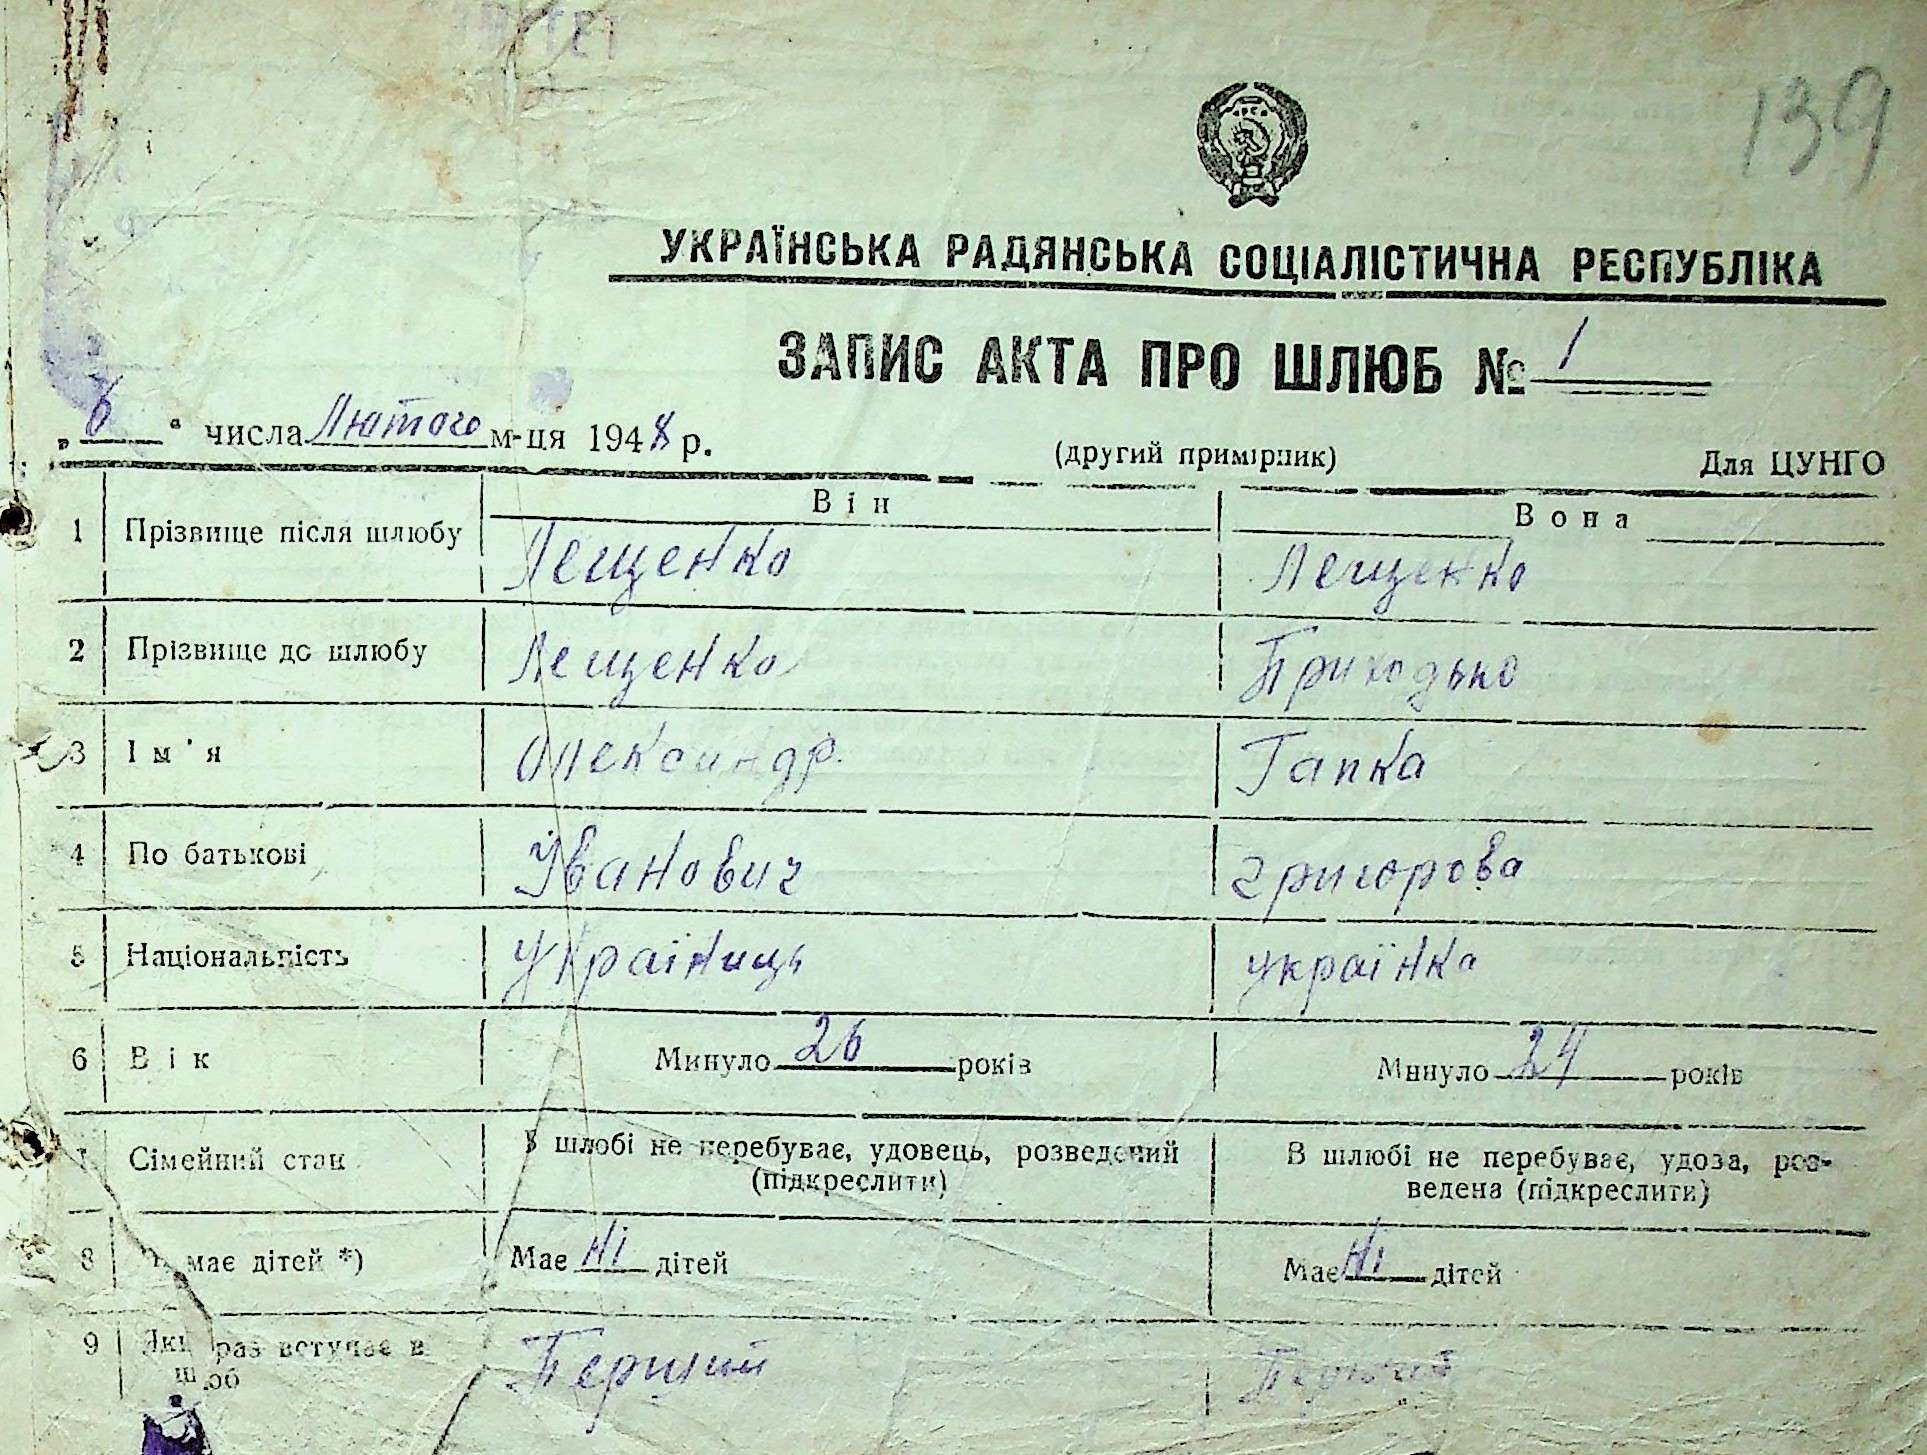 139
УКРАЇНСЬКА РАДЯНСЬКА СОЦІАЛІСТИЧНА РЕСПУБЛІКА
ЗАПИС АКТА ПРО ШЛЮБ № 1
„6“ числа Лютого м-ця 1948 р.
(другий примірник) Для ЦУНГО
Він Вона
1 Прізвище після шлюбу Лещенко Лещенко
2 Прізвище до шлюбу Лещенко Приходько
3 Ім'я Олександр. Гапка
4 По батькові Іванович григорова
5 Національність Україниць українка
6 Вік Минуло 26 років Минуло 24 років
7 Сімейний стан В шлобі не перебуває, удовець, розведений В шлюбі не перебуває, удова, роз-
(підкреслити) ведена (підкреслити)
8 має дітей *) Має Ні дітей Має Ні дітей
9 раз вступає в Перший Перший
шлюб